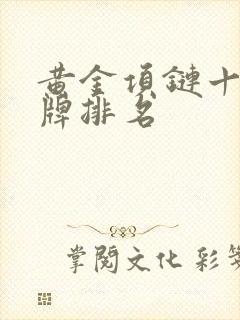 黄金項鏈十
牌排名
掌閱文化 彩